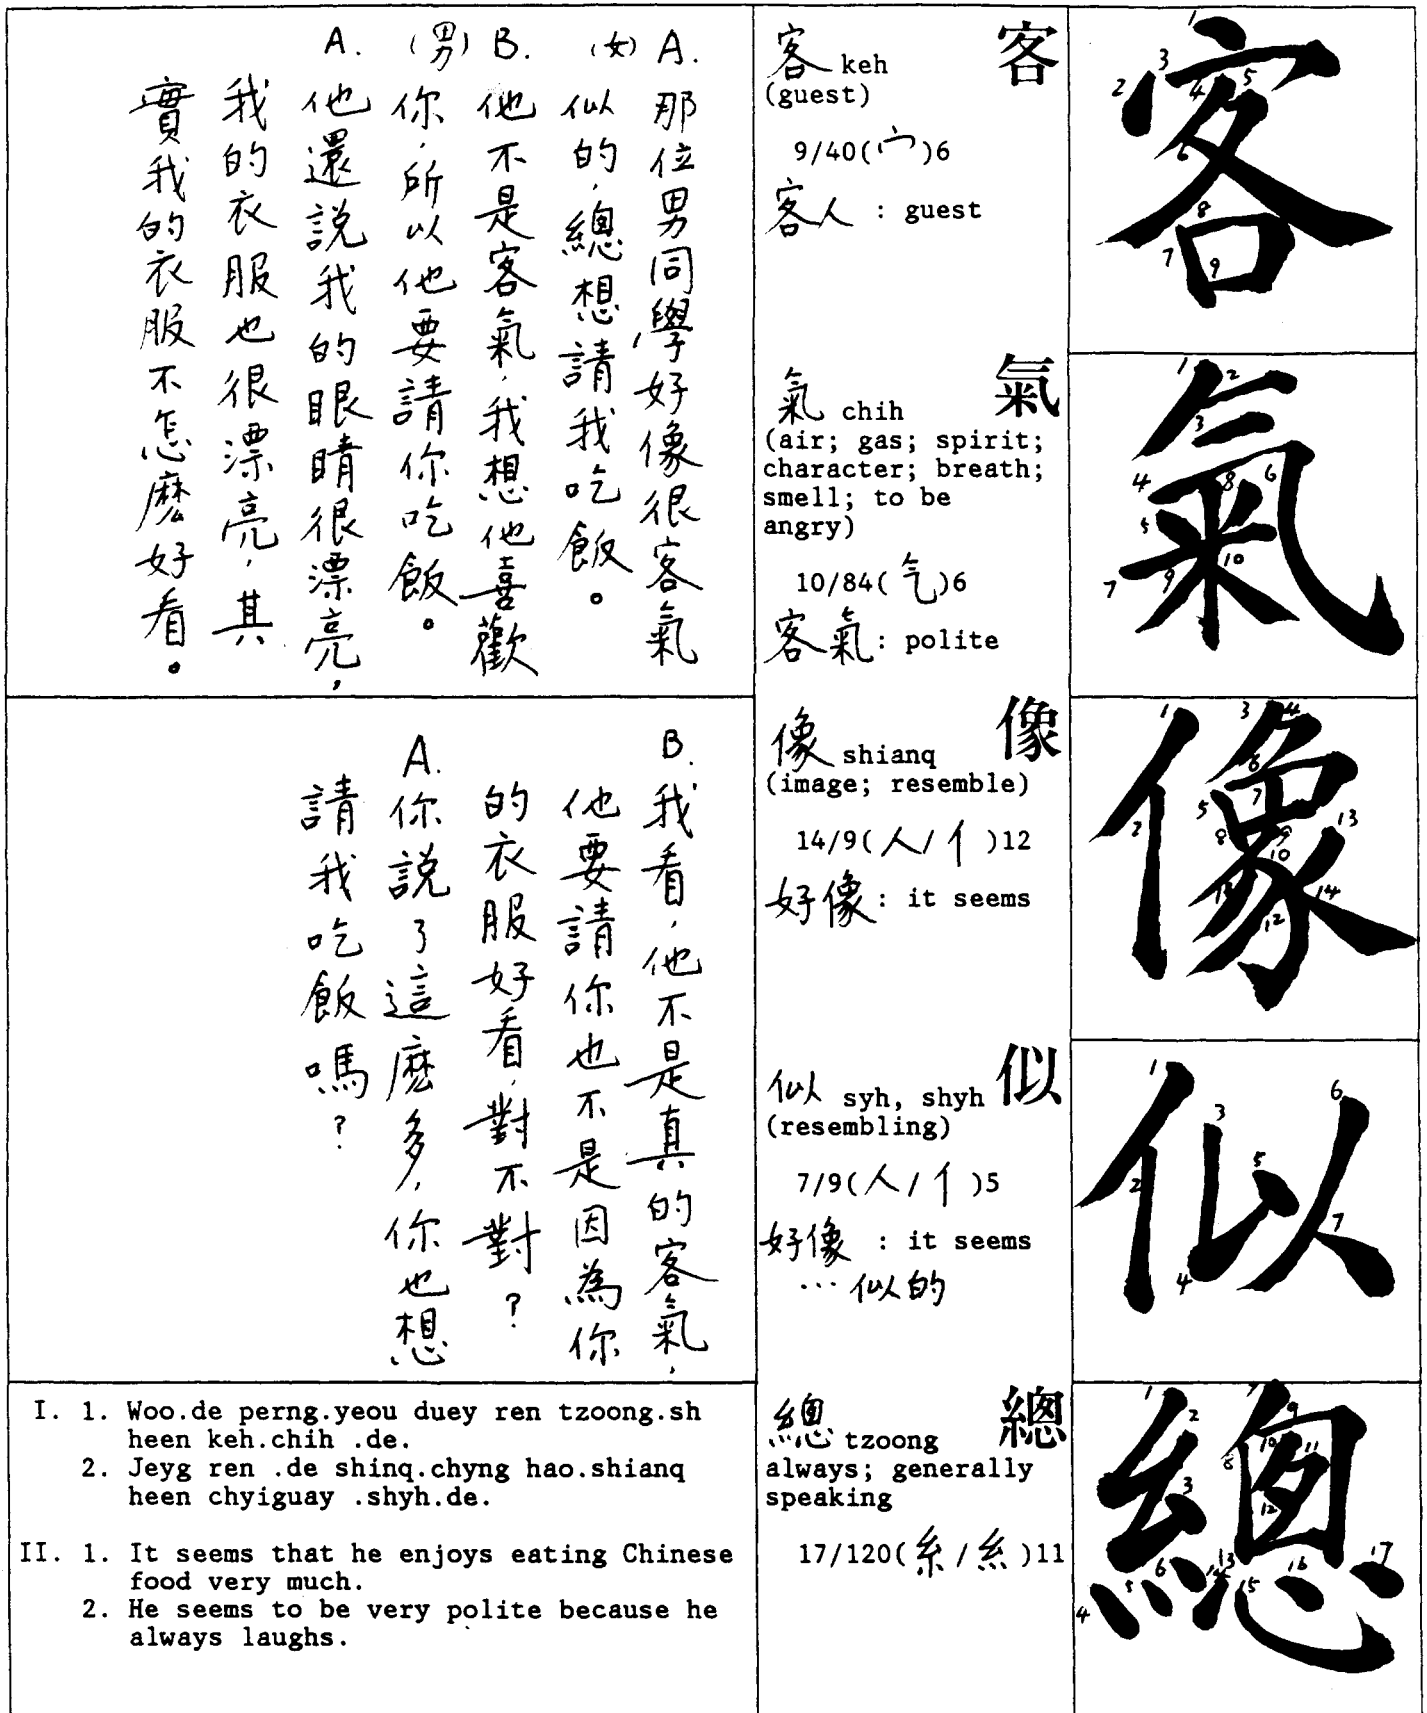 A. 那位男同學好像很客氣
(女) 似的，總想請我吃飯。
B. 他不是客氣，我想他喜歡
(男) 你，所以他要請你吃飯。
A. 他還説我的眼睛很漂亮，
我的衣服也很漂亮，其
實我的衣服不怎麼好看。
B. 我看，他不是真的客氣，
他要請你也不是因為你
的衣服好看，對不對？
A. 你説了這麼多，你也想
請我吃飯嗎？
I. 1. Woo.de perng.yeou duey ren tzoong.sh
heen keh.chih .de.
2. Jeyg ren .de shinq.chyng hao.shianq
heen chyiguay .shyh.de.
II. 1. It seems that he enjoys eating Chinese
food very much.
2. He seems to be very polite because he
always laughs.
客 keh 客
(guest)
9/40(宀)6
客人 : guest
氣 chih 氣
(air; gas; spirit;
character; breath;
smell; to be
angry)
10/84(气)6
客氣: polite
像 shianq 像
(image; resemble)
14/9(人/亻)12
好像: it seems
似 syh, shyh 似
(resembling)
7/9(人/亻)5
好像 : it seems
…似的
總 tzoong 總
always; generally
speaking
17/120(糸/糹)11
客
1 2 3 4 5 6 7 8 9
氣
1 2 3 4 5 6 7 8 9 10
像
1 2 3 14 5 6 7 8 9 10 12 13 14
似
1 2 3 4 5 6 7
總
1 2 3 4 5 6 7 8 9 10 11 12 13 14 15 16 17